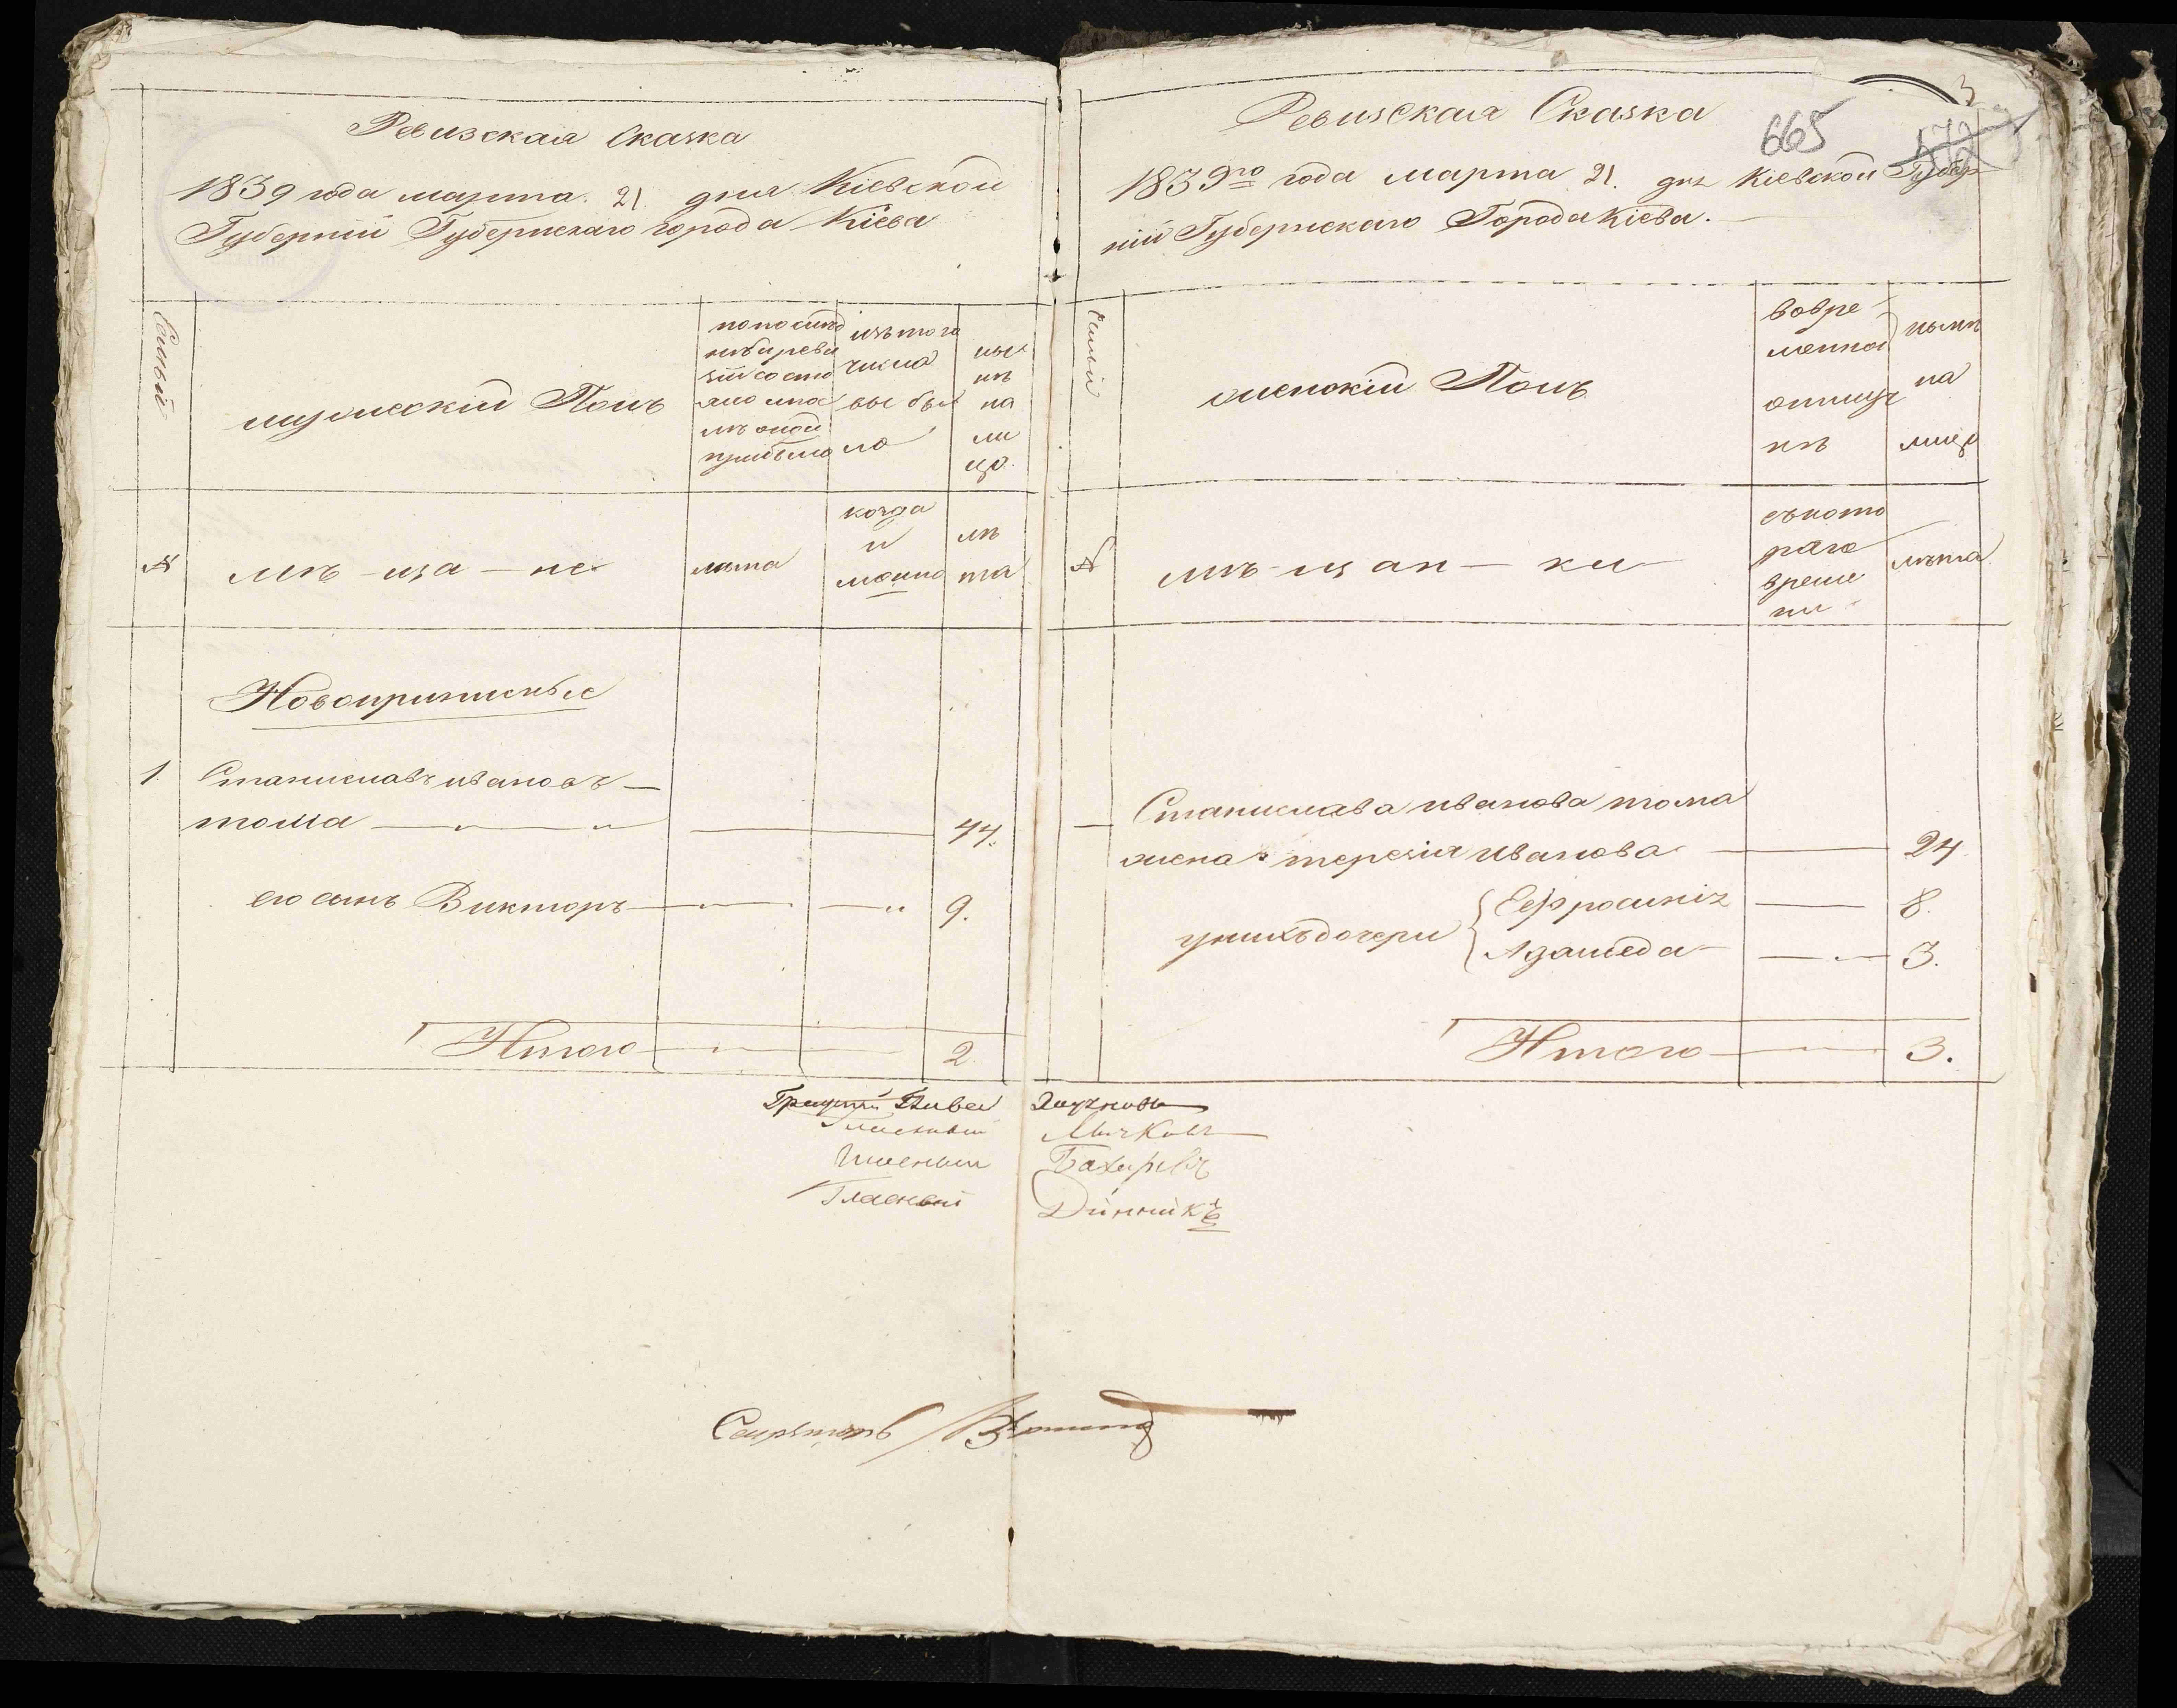 Ревизская Сказка
1839 года марта. 21. дня Кіевской
Губерніи Губернскаго города Кіева
Семьи
мужескій Полъ
по последней ревизіи состояло и после оной прибыло
изъ того числа выбыло
ныне на лицо.
№
мѣ-ща-не
лѣта
когда и именно
лѣта
Новоприписные
1. Станиславъ ивановъ
тома 44.
его сынъ Викторъ 9.
Итого 2
3
Ревизская Сказка
665
1839го года марта 21. дня Кіевской Губер
ніи Губернскаго Города Кіева.
Семьи
женскій Полъ
во временной отлучкѣ
нынѣ на лицо
№
мѣ-щан-ки
съ кото
раго
време
ни
лѣта
Станислава иванова тома
жена терезія иванова 24.
у нихъ дочери
Ефросинія 8.
3.
Итого 3.
Гласный
Гласный Динникъ
Секретарь